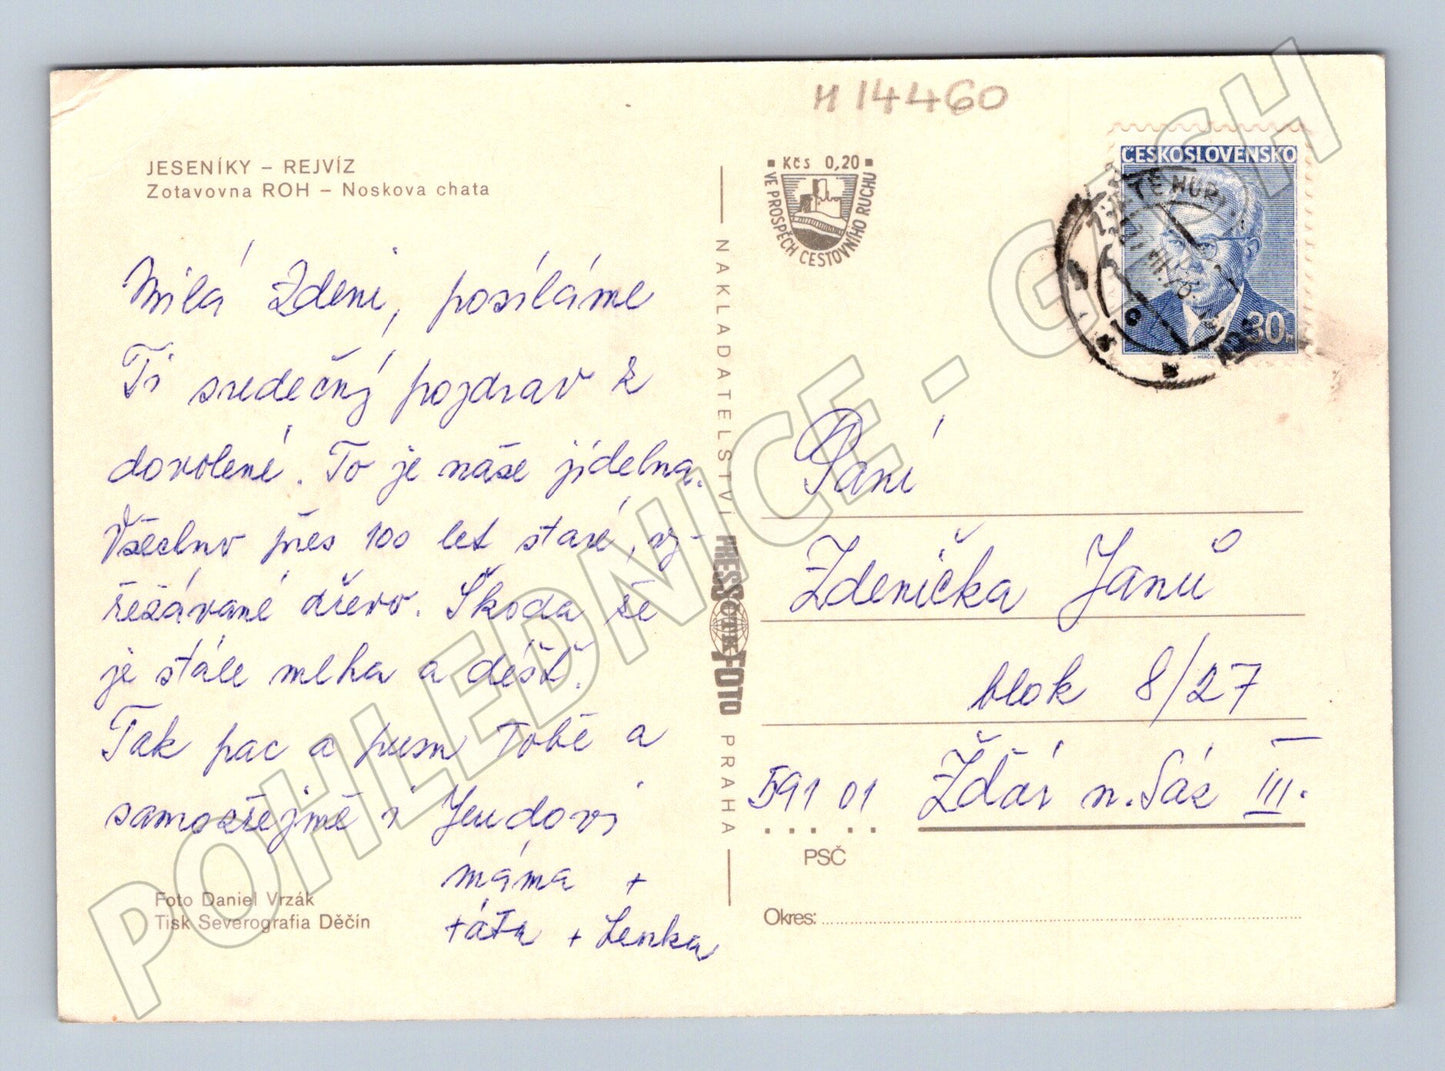 M 14460
JESENÍKY – REJVÍZ
Zotavovna ROH – Noskova chata
Kčs 0,20
VE PROSPĚCH CESTOVNÍHO RUCHU
ČESKOSLOVENSKO
30h
Milá Zdeni, posíláme
Ti srdečný pozdrav z
dovolené. To je naše jídelna.
Všechno přes 100 let staré, vy-
řezávané dřevo. Škoda že
je stále mlha a déšť.
Tak pac a pusu Tobě a
samozřejmě i Jendovi
máma +
táta + Lenka
Foto Daniel Vrzák
Tisk Severografia Děčín
NAKLADATELSTVÍ PRESSFOTO PRAHA
Paní
Zdenička Janů
blok 8/27
591 01 Žďár n. Sáz III.
PSČ
Okres:
POHLEDNICE - GASH